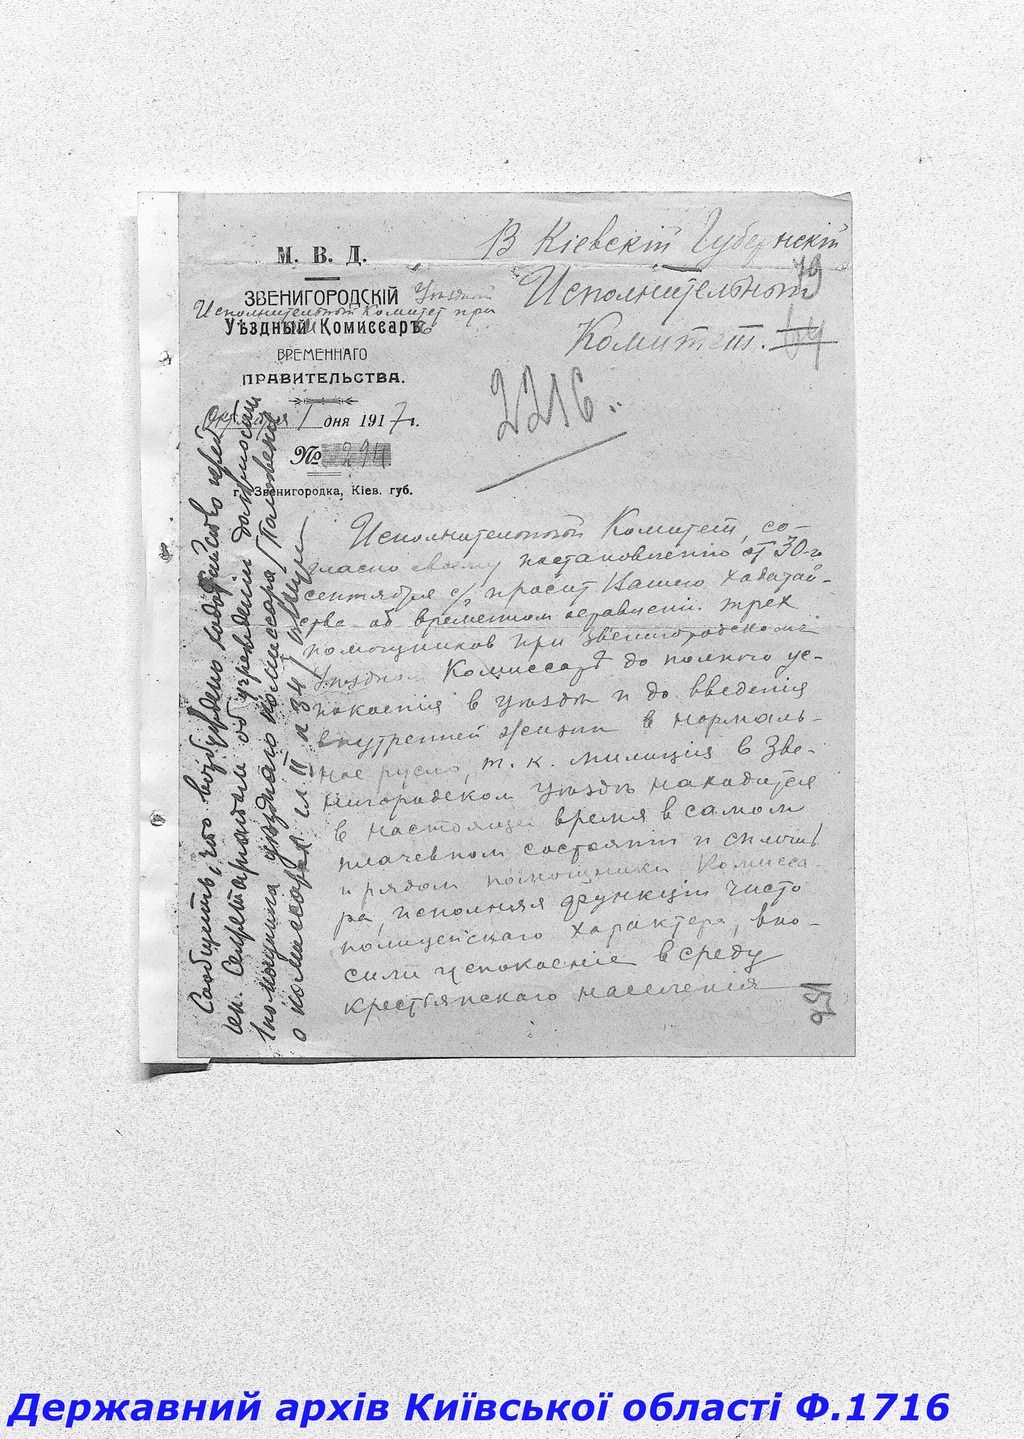 М. В. Д.
ЗВЕНИГОРОДСКІЙ Уездный
Исполнительный Комитет при
Уѣздный Комиссаръ
ВРЕМЕННАГО
ПРАВИТЕЛЬСТВА.
Октября 1 дня 1917 г.
№ 294
г. Звенигородка, Кіев. губ.
В Кіевскій Губернскій
79
Исполнительный
Комитет. 64
2216
Исполнительный Комитет, со-
гласно своему постановленію от 30-го
сентября с/г просит Вашего ходатай-
ства об временном оставленіи трех
помощников при Звенигородском
Уездном Комиссарѣ до полного ус-
покоенія в уѣздѣ и до введенія
внутренней жизни в нормаль-
ное русло, т. к. милиція в Зве-
нигородском уѣздѣ находится
в настоящее время в самом
плачевном состояніи и сплошь
и рядом помощники Комисса-
ра, исполняя функціи чисто
полицейскаго характера, вно-
сили успокоеніе в среду
крестьянскаго населенія
Сообщить, что возбуждено ходатайство перед
ген. Секретариатом об учреждении должности
помощника уездного комиссара / Положение
о комиссарах